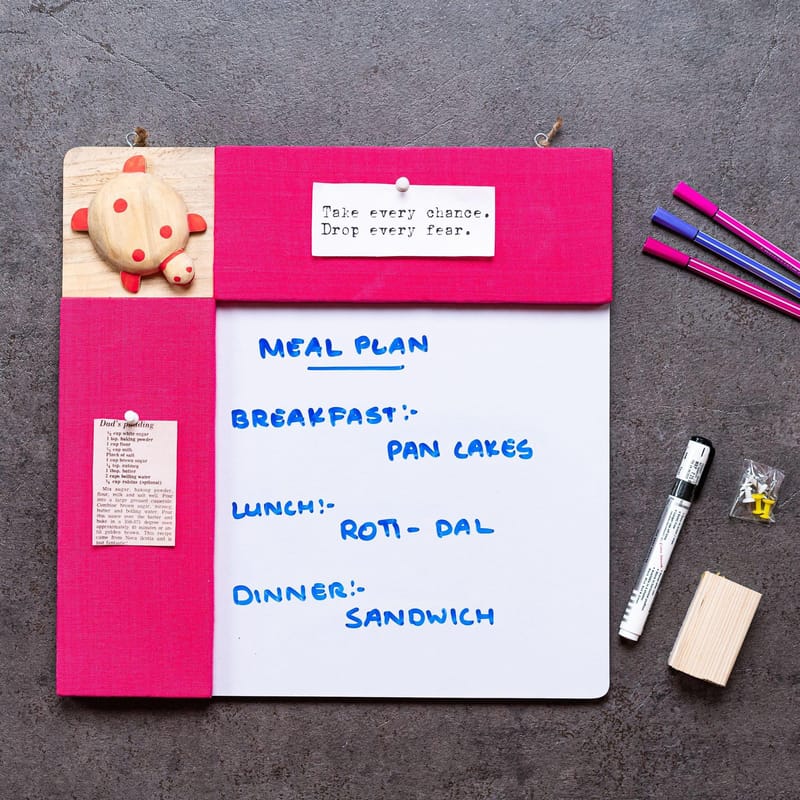 Take every chance.
Drop every fear.
MEAL PLAN
BREAKFAST:-
PAN CAKES
LUNCH:-
ROTI - DAL
DINNER:-
SANDWICH
Dad's pudding
¾ cup white sugar
1 tsp. baking powder
1 cup flour
½ cup milk
Pinch of salt
1 cup brown sugar
1 tbsp. butter
2 cups boiling water
cup raisins (optional)
Mix sugar, baking powder,
flour, milk and salt well. Pour
into a large greased casserole.
Combine brown sugar, nutmeg,
butter and boiling water. Pour
this sauce over the batter and
bake in a 350-375 degree oven
approximately 45 minutes or un-
til golden brown. This recipe
came from Nova Scotia and is
just fantastic!